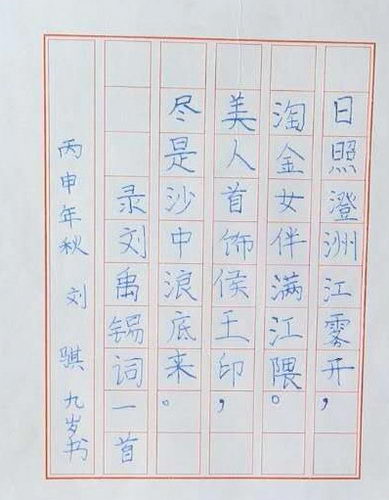 日照澄洲江雾开，
淘金女伴满江隈。
美人首饰侯王印，
尽是沙中浪底来。
录刘禹锡词一首
丙申年秋 刘骐 九岁书